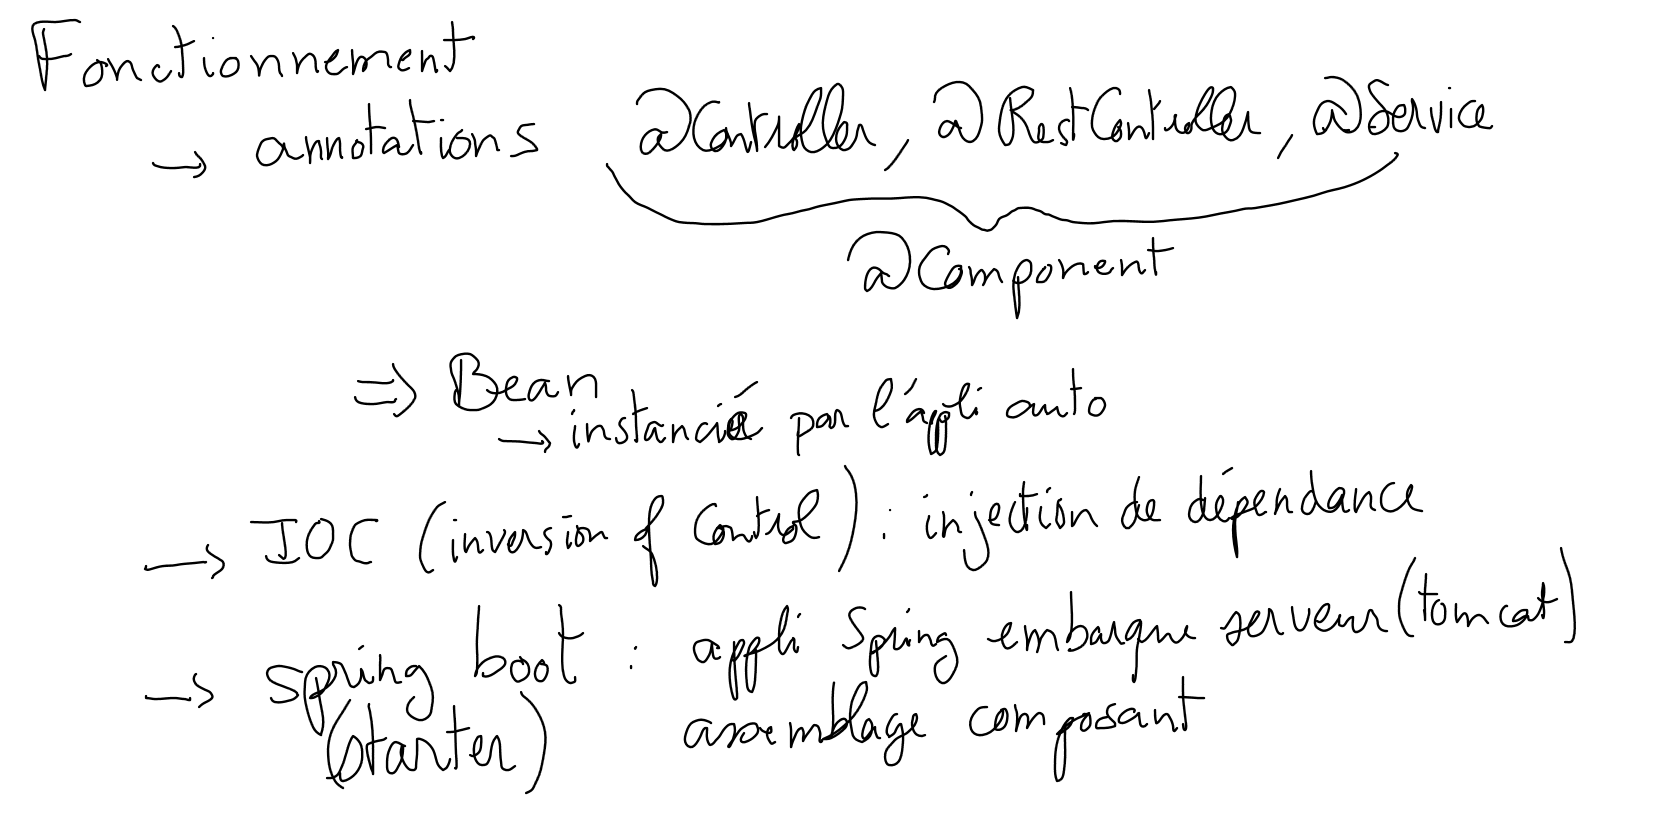 Fonctionnement
→ annotations @Controller, @RestController, @Service
@Component
⇒ Bean
→ instancié par l'appli auto
→ IOC (inversion of Control) : injection de dépendance
→ spring boot : appli Spring embarque serveur (tomcat)
(starter) assemblage composant